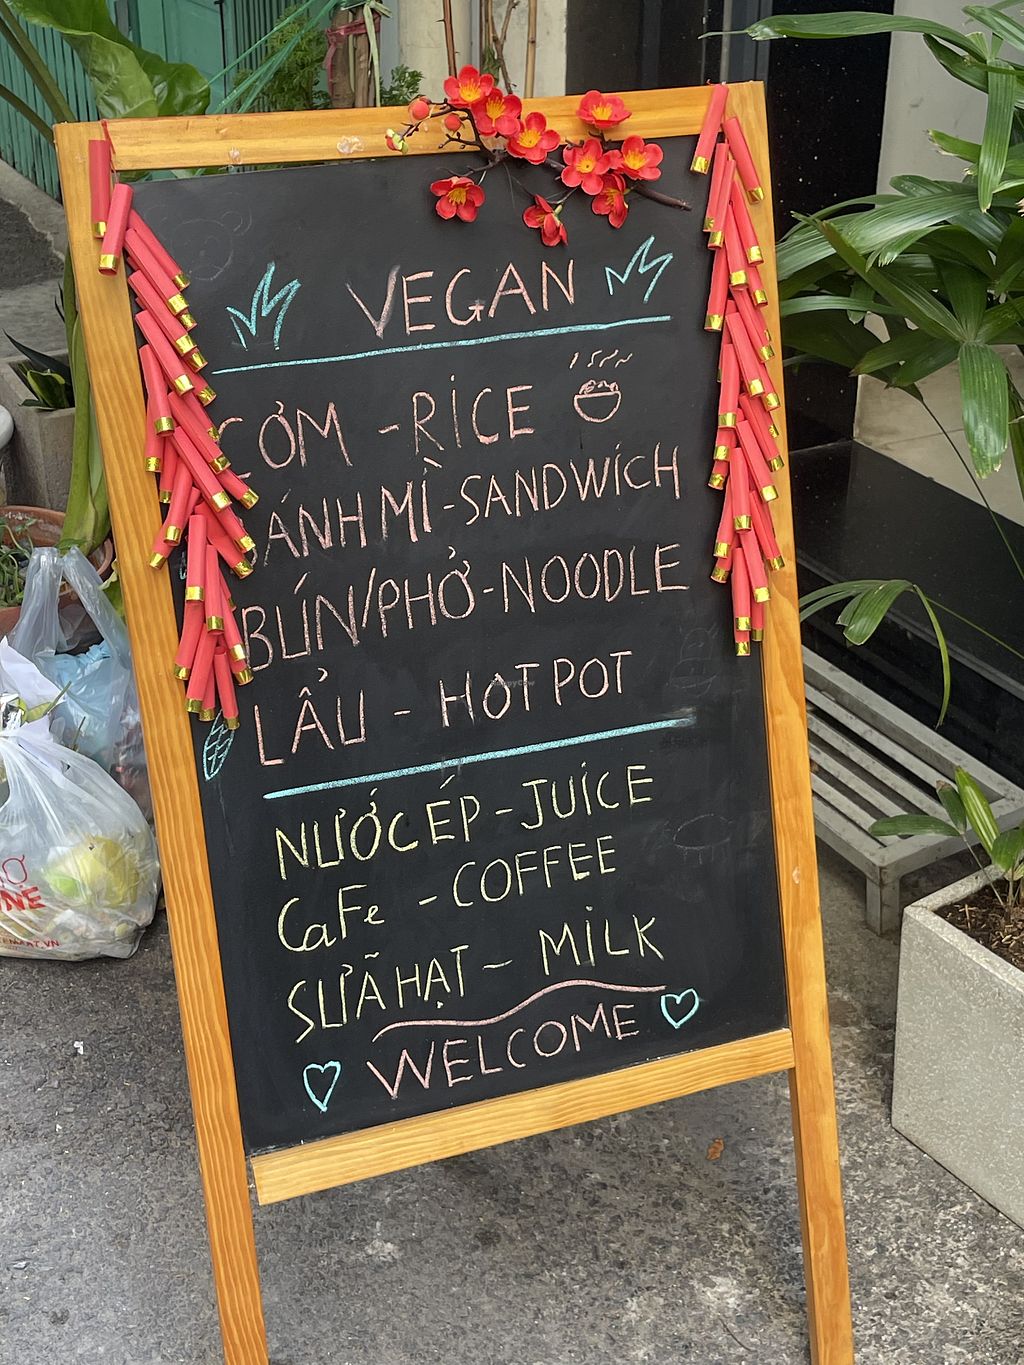 VEGAN
CƠM - RICE
BÁNH MÌ - SANDWICH
BÚN/PHỞ - NOODLE
LẨU - HOT POT
NƯỚC ÉP - JUICE
CaFe - COFFEE
SỮA HẠT - MILK
WELCOME
NE